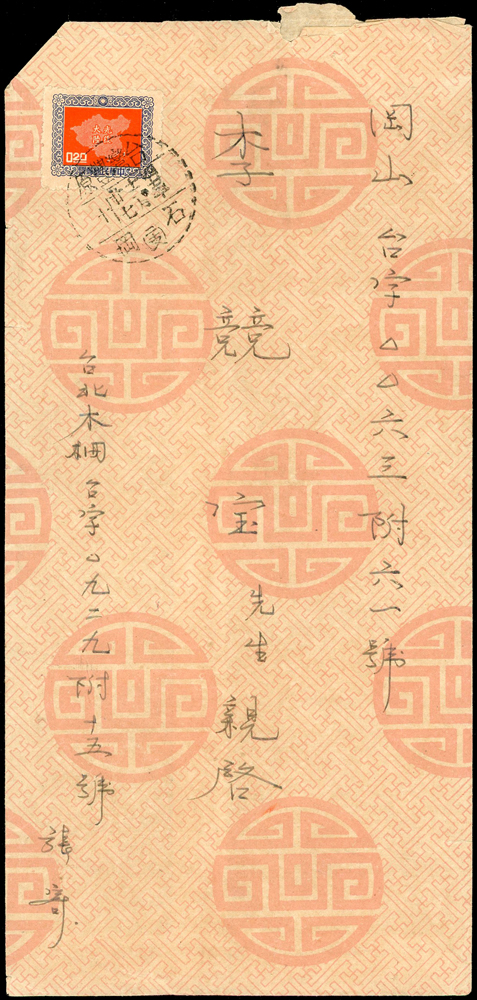 岡山 台字△△六三附六一號
李競宝先生親啓
台北木柵台字△九二九附十五號
張寄
0.20
石岡